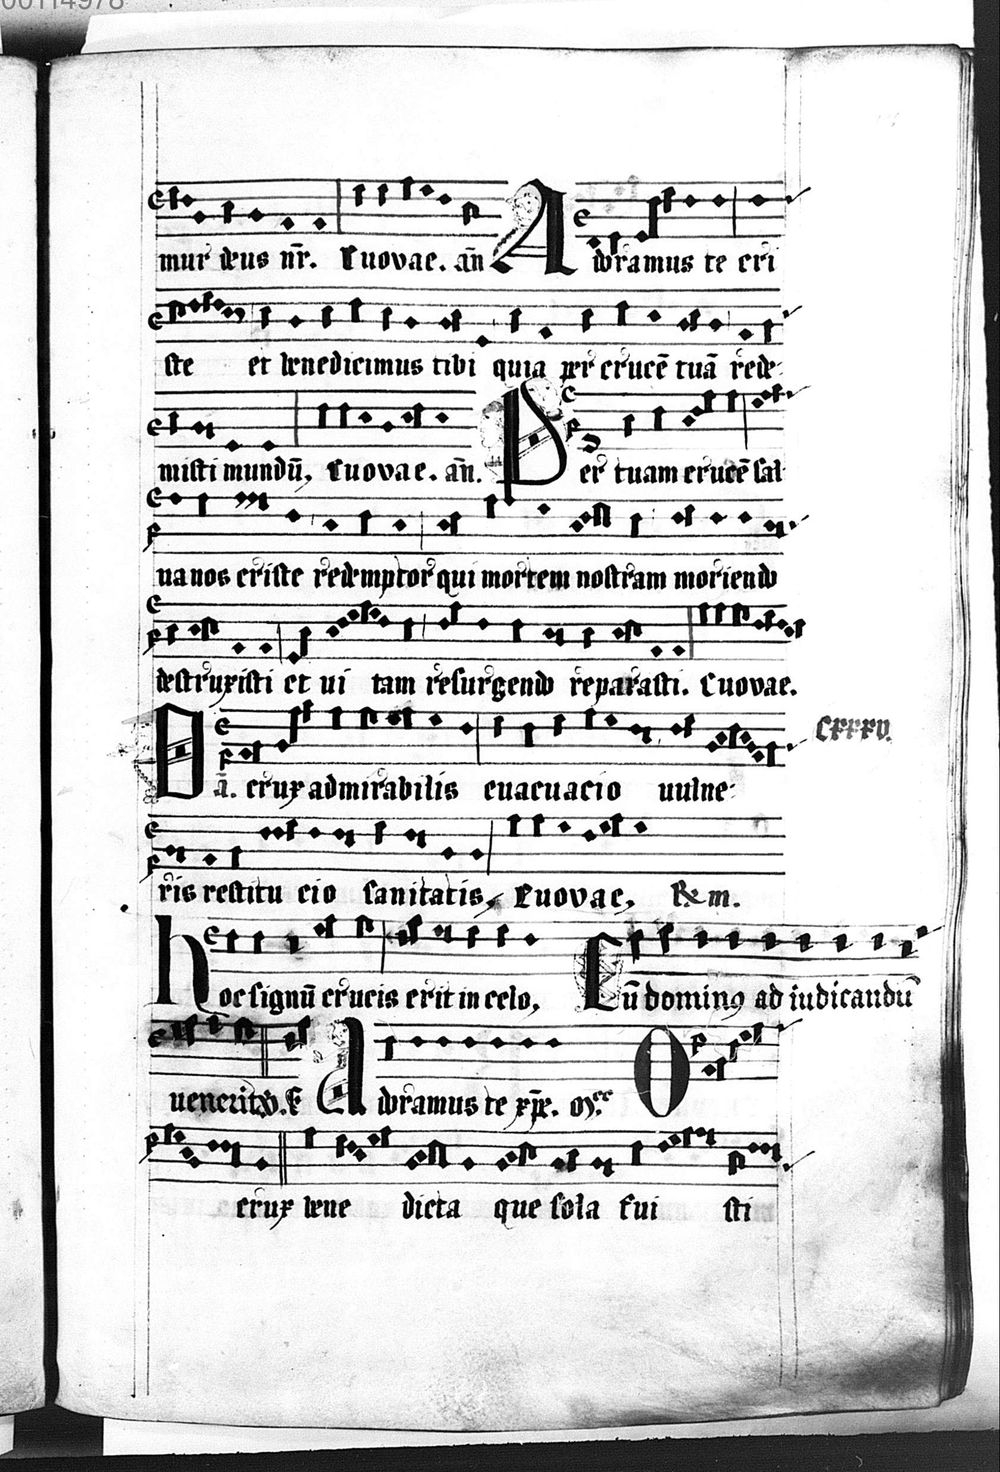 00114978
mur deus nr̄. Euovae. an̄ Adoramus te cri
ste et benedicimus tibi quia per crucē tuā rede
misti mundū, Euovae. an̄. Per tuam crucē sal
ua nos criste redemptor qui mortem nostram moriendo
destruxisti et ui tam resurgendo reparasti. Euovae.
CXXXV.
O ā. crux admirabilis euacuacio uulne
ris restitu cio sanitatis, Euovae,
Hoc signū crucis erit in celo, Cū dominꝰ ad iudicandū
uenerit Adoramus te xp̄e. O
crux bene dicta que sola fui sti